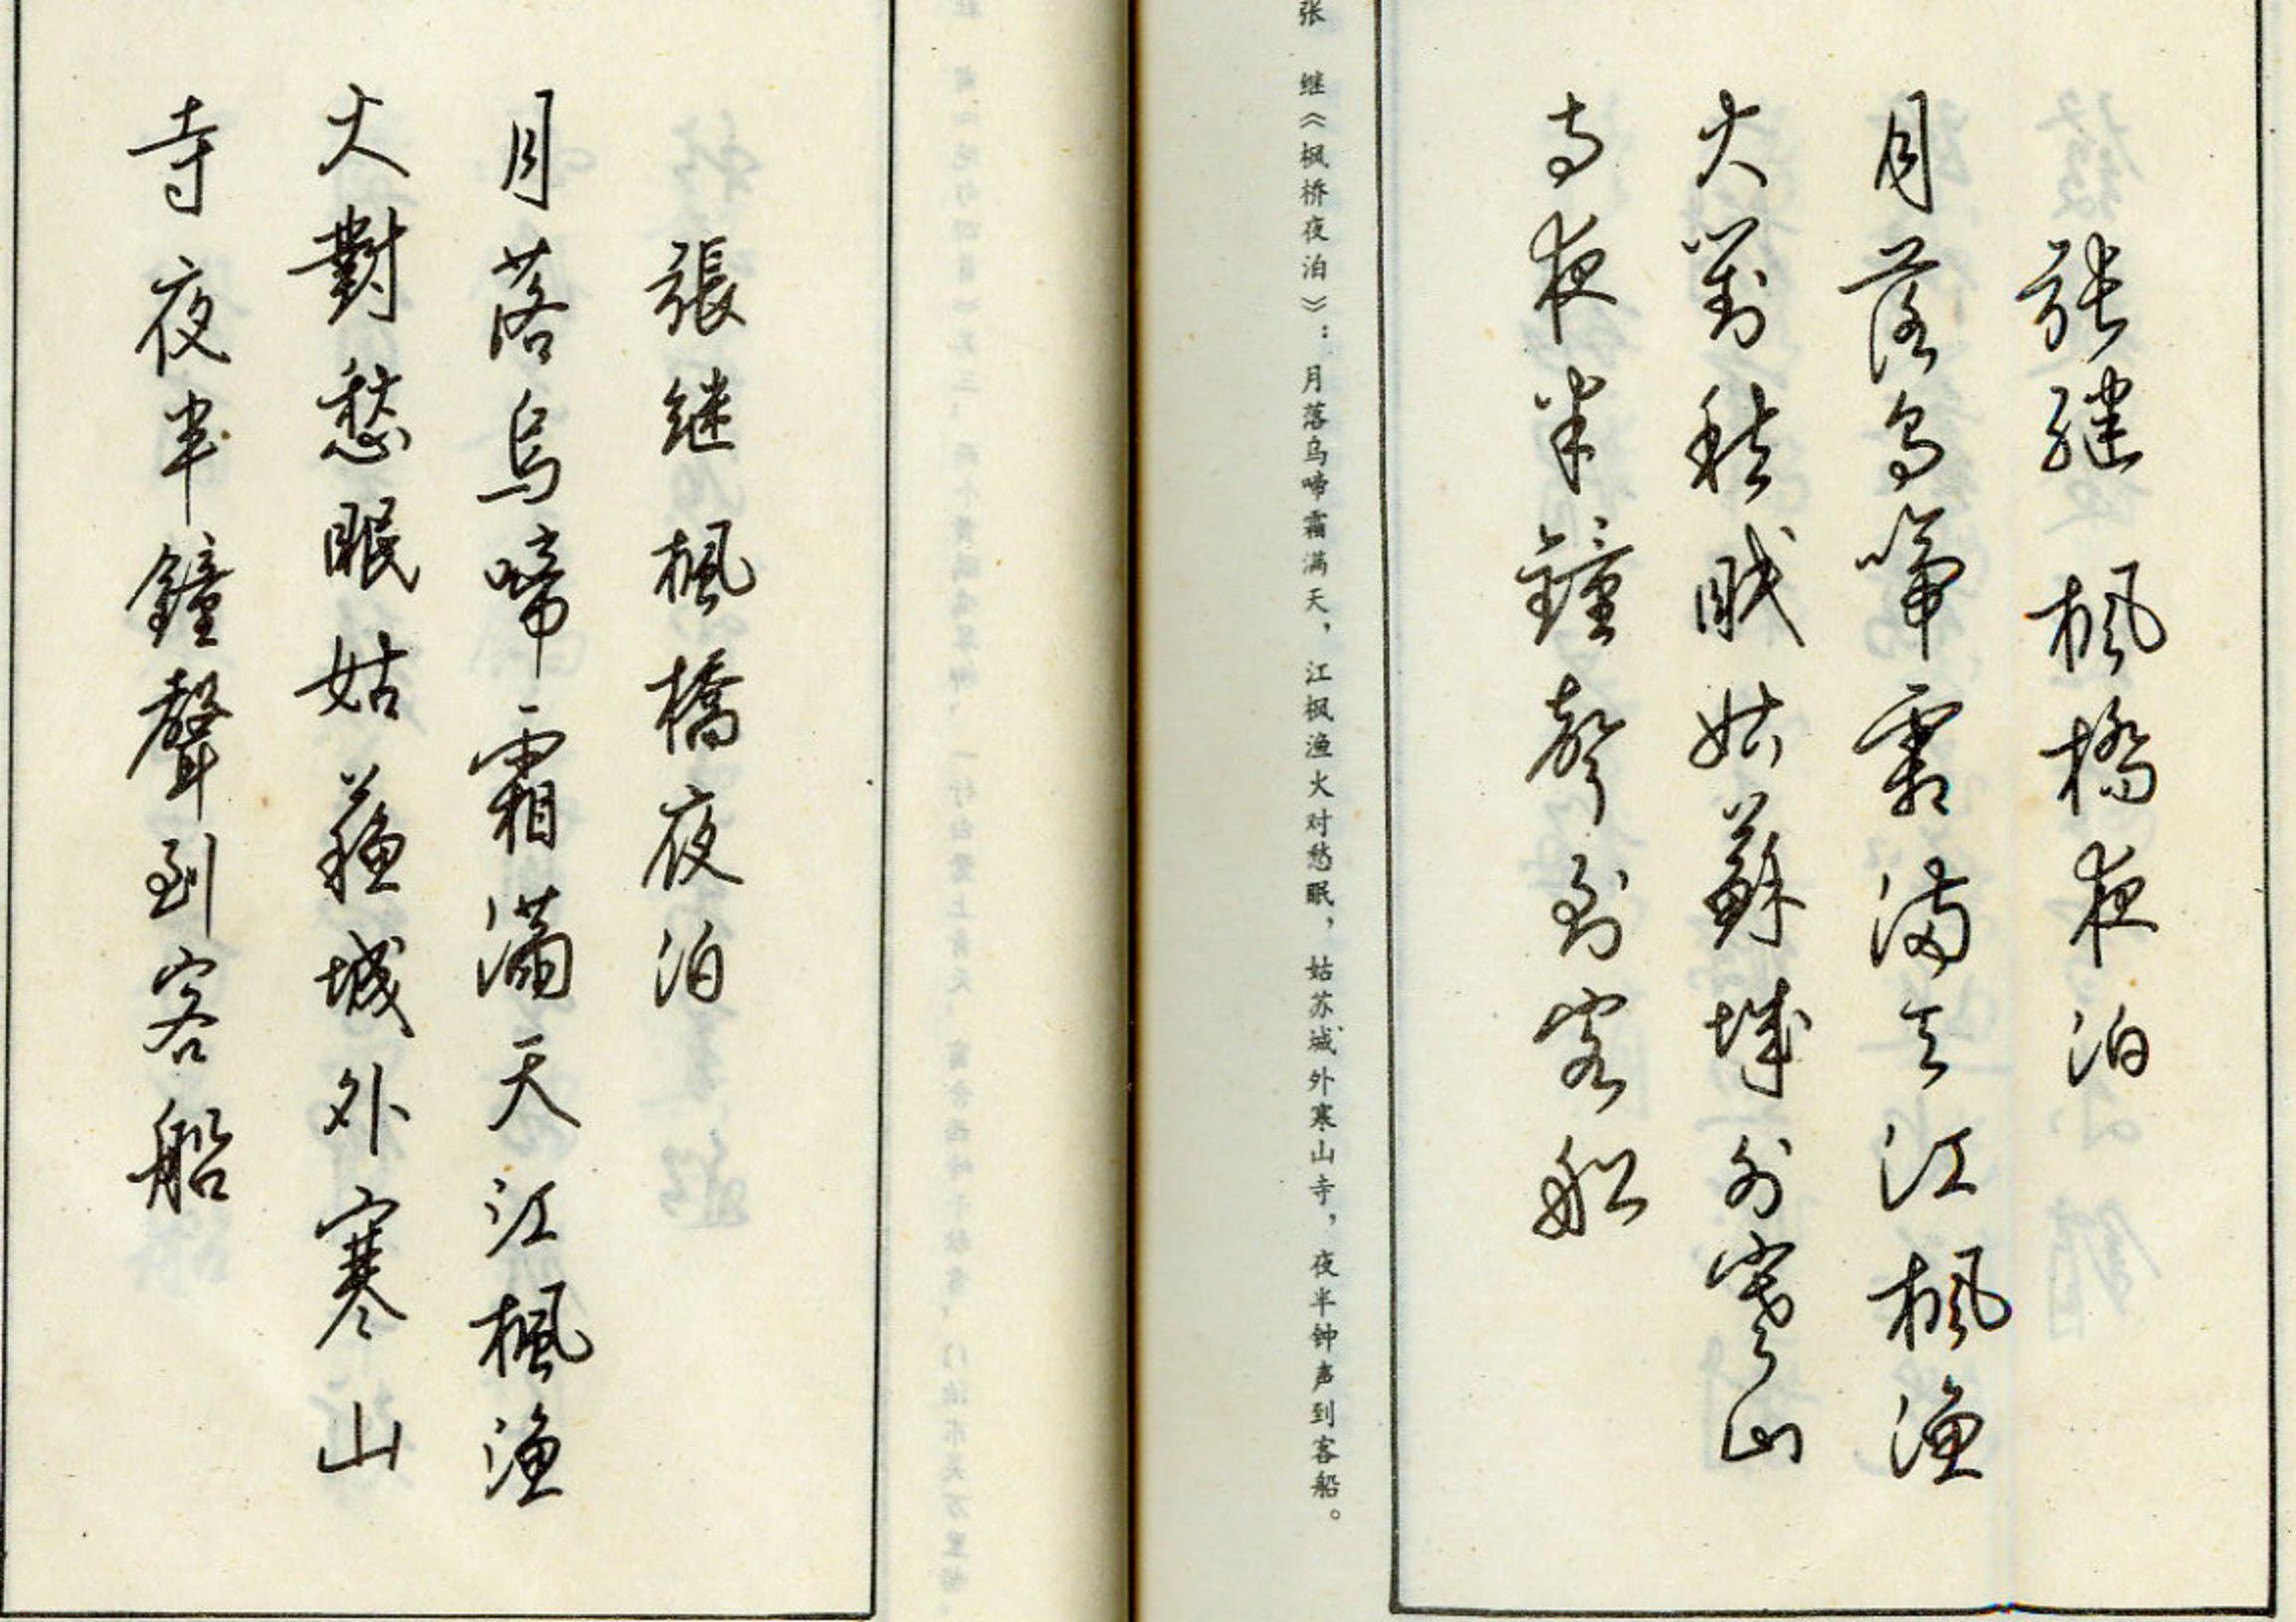 張继 楓橋夜泊
月落烏啼霜满天江楓渔
火對愁眠姑蘇城外寒山
寺夜半鐘聲到客船
张 继《枫桥夜泊》：月落乌啼霜满天，江枫渔火对愁眠，姑苏城外寒山寺，夜半钟声到客船。
張继 楓橋夜泊
月落烏啼霜滿天江楓渔
火對愁眠姑蘓城外寒山
寺夜半鐘聲到客船